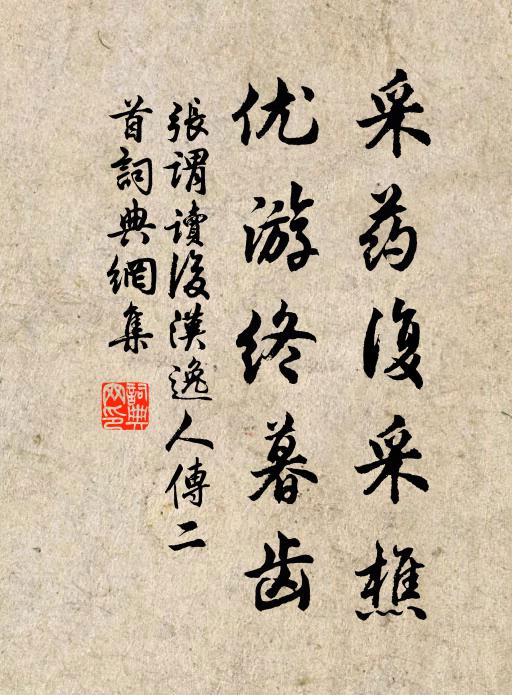 采药復采樵
优游终暮齿
張謂讀後漢逸人傳二
首詞典網集
詞典网印